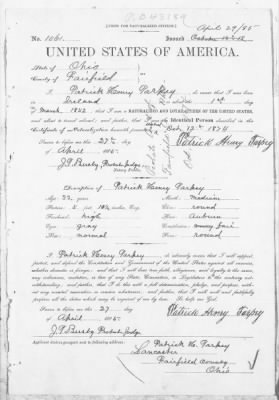 [FORM FOR NATURALIZED CITIZEN.]
April 29/85
No. 1061. Issued
UNITED STATES OF AMERICA.
State of Ohio
County of Fairfield
I Patrick Henry Farpey do swear that I was
born in Ireland on or about the 1st day
of March, 1852 that I am a NATURALIZED AND LOYAL CITIZEN OF THE UNITED STATES,
and about to travel abroad; and further, that I am the Identical Person described in the
Certificate of Naturalization herewith presented Oct 12th 1874
Sworn to before me this 27th day Patrick Henry Farpey
of April 1885.
J P Busby Probate Judge
Notary Public.
Description of Patrick Henry Farpey
Age: 33 years Mouth: Medium
Stature: 5 feet 10½ inches, Eng. Chin: round
Forehead: high Hair: Auburn
Eyes: gray Complexion: fair
Nose: normal Face: round
I Patrick Henry Farpey do solemnly swear that I will support,
protect, and defend the Constitution and Government of the United States against all enemies,
whether domestic or foreign; and that I will bear true faith, allegiance, and loyalty to the same,
any ordinance, resolution, or law of any State, Convention, or Legislature to the contrary not-
withstanding; and further, that I do this with a full determination, pledge, and purpose, with-
out any mental reservation or evasion whatsoever; and further, that I will well and faithfully
perform all the duties which may be required of me by law. So help me God.
Sworn to before me this 27 Patrick Henry Farpey
day of April 1885.
J P Busby Probate Judge
Applicant desires passport sent to following address:
Patrick H. Farpey
Lancaster
Fairfield County
Ohio